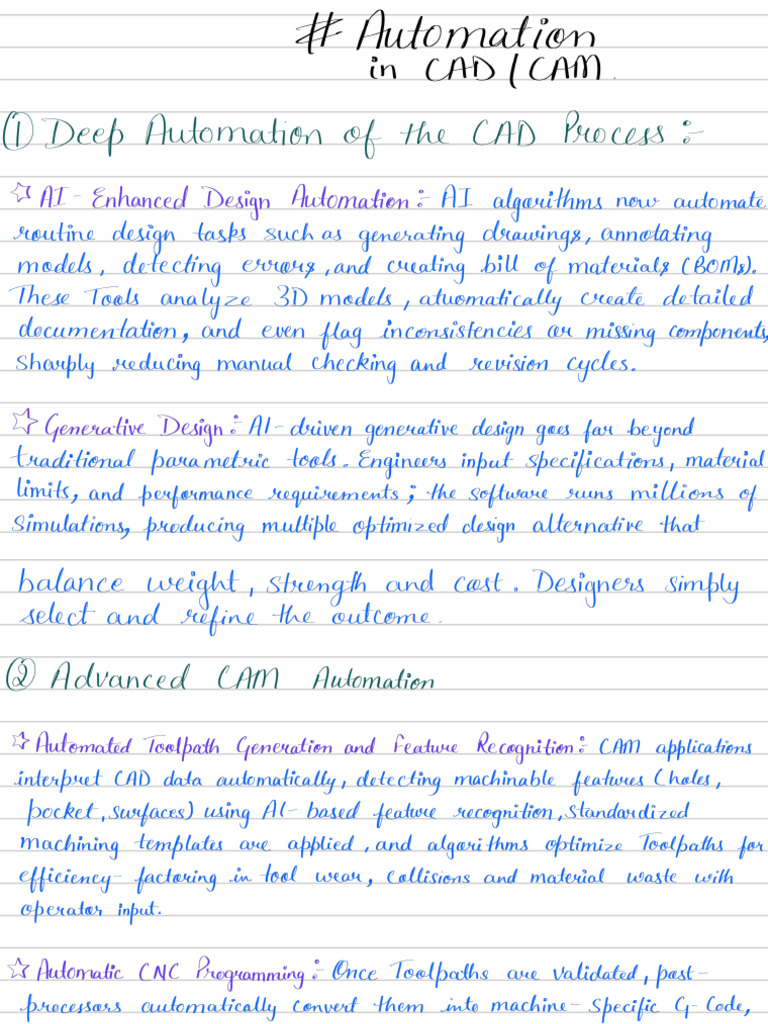 # Automation
in CAD/CAM.
① Deep Automation of the CAD Process:-
☆ AI-Enhanced Design Automation:- AI algorithms now automate
routine design tasks such as generating drawings, annotating
models, detecting errors, and creating bill of materials (BOMs).
These Tools analyze 3D models, atuomatically create detailed
documentation, and even flag inconsistencies or missing components,
sharply reducing manual checking and revision cycles.
☆ Generative Design:- AI-driven generative design goes far beyond
traditional parametric tools. Engineers input specifications, material
limits, and performance requirements; the software runs millions of
simulations, producing multiple optimized design alternative that
balance weight, strength and cost. Designers simply
select and refine the outcome.
② Advanced CAM Automation
☆ Automated Toolpath Generation and Feature Recognition:- CAM applications
interpret CAD data automatically, detecting machinable features (holes,
pocket, surfaces) using AI-based feature recognition, standardized
machining templates are applied, and algorithms optimize Toolpaths for
efficiency- factoring in tool wear, collisions and material waste with
operator input.
☆ Automatic CNC Programming:- Once Toolpaths are validated, post-
processors automatically convert them into machine-specific G-Code,